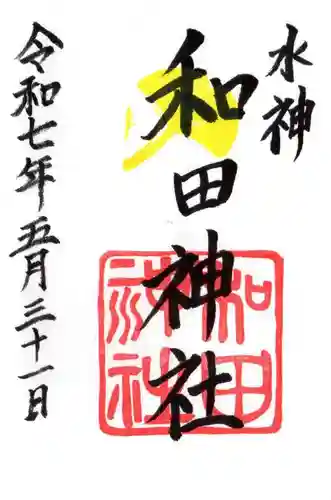 水神
和田神社
和田
神社
令和七年五月三十一日